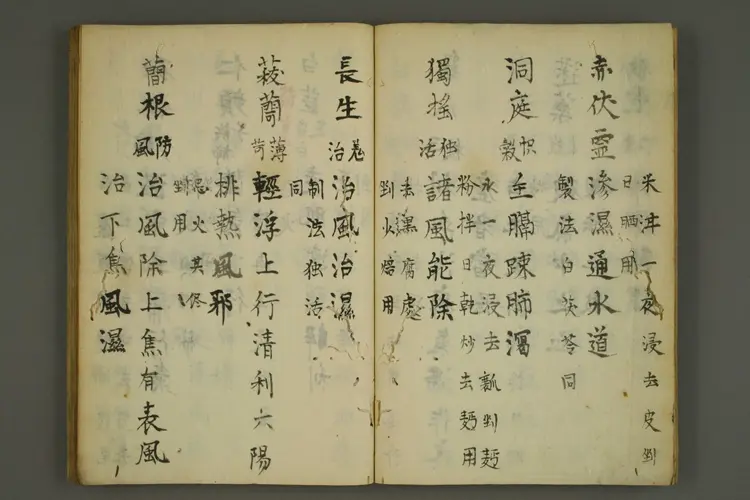 米泔一夜浸去皮剉
日晒用
赤伏霊 滲濕通水道
製法白茯苓同
洞庭 枳殼 主膈踈肺瀉
水一夜浸去瓤剉麪
粉拌日乾炒去麪用
獨搖 独活 諸風能除
去黒腐處
剉火焙用
長生 羌活 治風治濕
制法独活
同
薄荷 輕浮上行清利六陽
排熱風邪
忌火其侭
剉用
根 防風 治風除上焦有表風
治下焦風濕